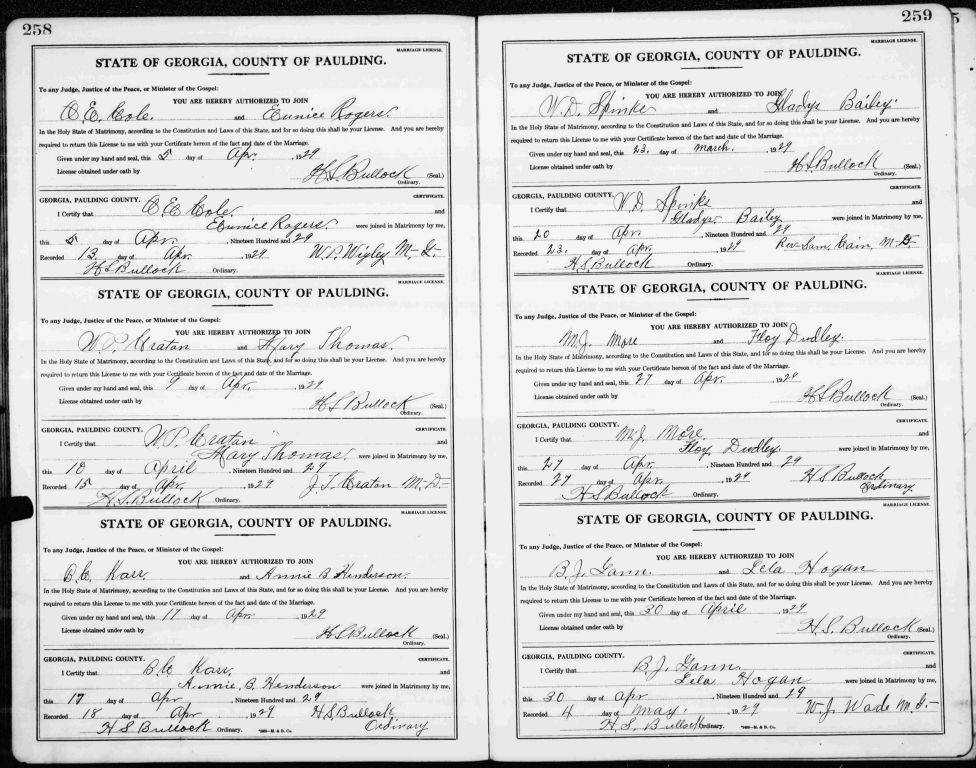 258
MARRIAGE LICENSE.
STATE OF GEORGIA, COUNTY OF PAULDING.
To any Judge, Justice of the Peace, or Minister of the Gospel:
YOU ARE HEREBY AUTHORIZED TO JOIN
C. E. Cole. and Eunice Rogers.
In the Holy State of Matrimony, according to the Constitution and Laws of this State, and for so doing this shall be your License. And you are hereby
required to return this License to me with your Certificate hereon of the fact and date of the Marriage.
Given under my hand and seal, this 5 day of Apr. , 1929
License obtained under oath by H.S. Bullock (Seal.)
Ordinary.
CERTIFICATE.
GEORGIA, PAULDING COUNTY.
I Certify that C E Cole. and
Eunice Rogers. were joined in Matrimony by me,
this 5 day of Apr. , Nineteen Hundred and 29
Recorded 13. day of Apr. , 1929. W.P. Wigley M.G.
H S Bullock Ordinary.
MARRIAGE LICENSE.
STATE OF GEORGIA, COUNTY OF PAULDING.
To any Judge, Justice of the Peace, or Minister of the Gospel:
YOU ARE HEREBY AUTHORIZED TO JOIN
W P Cratan and Mary Thomas.
In the Holy State of Matrimony, according to the Constitution and Laws of this State, and for so doing this shall be your License. And you are hereby
required to return this License to me with your Certificate hereon of the fact and date of the Marriage.
Given under my hand and seal, this 9 day of Apr. , 1929
License obtained under oath by H S Bullock (Seal.)
Ordinary.
CERTIFICATE.
GEORGIA, PAULDING COUNTY.
I Certify that W.P. Cratan and
Mary Thomas. were joined in Matrimony by me,
this 10 day of April , Nineteen Hundred and 29
Recorded 15 day of Apr. , 1929 J.T. Craton M.D.
H.S. Bullock Ordinary.
MARRIAGE LICENSE.
STATE OF GEORGIA, COUNTY OF PAULDING.
To any Judge, Justice of the Peace, or Minister of the Gospel:
YOU ARE HEREBY AUTHORIZED TO JOIN
B.C. Karr. and Annie B Henderson.
In the Holy State of Matrimony, according to the Constitution and Laws of this State, and for so doing this shall be your License. And you are hereby
required to return this License to me with your Certificate hereon of the fact and date of the Marriage.
Given under my hand and seal, this 17 day of Apr. , 1929
License obtained under oath by H S Bullock (Seal.)
Ordinary.
CERTIFICATE.
GEORGIA, PAULDING COUNTY.
I Certify that B.C. Karr. and
Annie, B. Henderson were joined in Matrimony by me,
this 17 day of Apr , Nineteen Hundred and 29
Recorded 18 day of Apr , 1929 H.S. Bullock
H S Bullock Ordinary. Ordinary
259
MARRIAGE LICENSE.
STATE OF GEORGIA, COUNTY OF PAULDING.
To any Judge, Justice of the Peace, or Minister of the Gospel:
YOU ARE HEREBY AUTHORIZED TO JOIN
W.D. Spinks and Gladys Bailey.
In the Holy State of Matrimony, according to the Constitution and Laws of this State, and for so doing this shall be your License. And you are hereby
required to return this License to me with your Certificate hereon of the fact and date of the Marriage.
Given under my hand and seal, this 23. day of March. , 1929
License obtained under oath by H.S. Bullock (Seal.)
Ordinary.
CERTIFICATE.
GEORGIA, PAULDING COUNTY.
I Certify that W.D. Spinks and
Gladys Bailey were joined in Matrimony by me,
this 20 day of Apr. , Nineteen Hundred and 29
Recorded 23. day of Apr. , 1929 Rev. Sam, Cain, M.G.
H.S Bullock Ordinary.
MARRIAGE LICENSE.
STATE OF GEORGIA, COUNTY OF PAULDING.
To any Judge, Justice of the Peace, or Minister of the Gospel:
YOU ARE HEREBY AUTHORIZED TO JOIN
M.J. More and Floy Dudley.
In the Holy State of Matrimony, according to the Constitution and Laws of this State, and for so doing this shall be your License. And you are hereby
required to return this License to me with your Certificate hereon of the fact and date of the Marriage.
Given under my hand and seal, this 27 day of Apr. , 1929
License obtained under oath by H S Bullock (Seal.)
Ordinary.
CERTIFICATE.
GEORGIA, PAULDING COUNTY.
I Certify that M.J. More. and
Floy, Dudley. were joined in Matrimony by me,
this 27 day of Apr. , Nineteen Hundred and 29
Recorded 27 day of Apr. , 1929 H S Bullock
H S Bullock Ordinary. Ordinary.
MARRIAGE LICENSE.
STATE OF GEORGIA, COUNTY OF PAULDING.
To any Judge, Justice of the Peace, or Minister of the Gospel:
YOU ARE HEREBY AUTHORIZED TO JOIN
B.J. Gann. and Lela Hogan
In the Holy State of Matrimony, according to the Constitution and Laws of this State, and for so doing this shall be your License. And you are hereby
required to return this License to me with your Certificate hereon of the fact and date of the Marriage.
Given under my hand and seal, this 30 day of April , 1929
License obtained under oath by H.S. Bullock (Seal.)
Ordinary.
CERTIFICATE.
GEORGIA, PAULDING COUNTY.
I Certify that B.J. Gann. and
Lela Hogan were joined in Matrimony by me,
this 30 day of Apr , Nineteen Hundred and 29
Recorded 4 day of May. , 1929 W.J. Wade M.G.
H.S. Bullock Ordinary.